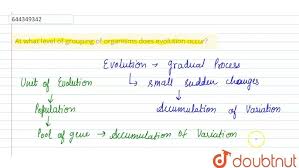 644349342
At what level of grouping of organisms does evolution occur?
Evolution → gradual Process
Unit of Evolution ↳ small sudden changes
↓ ↓
Population Accumulation of Variation
↳ Pool of gene → Accumulation of Variation
doubtnut